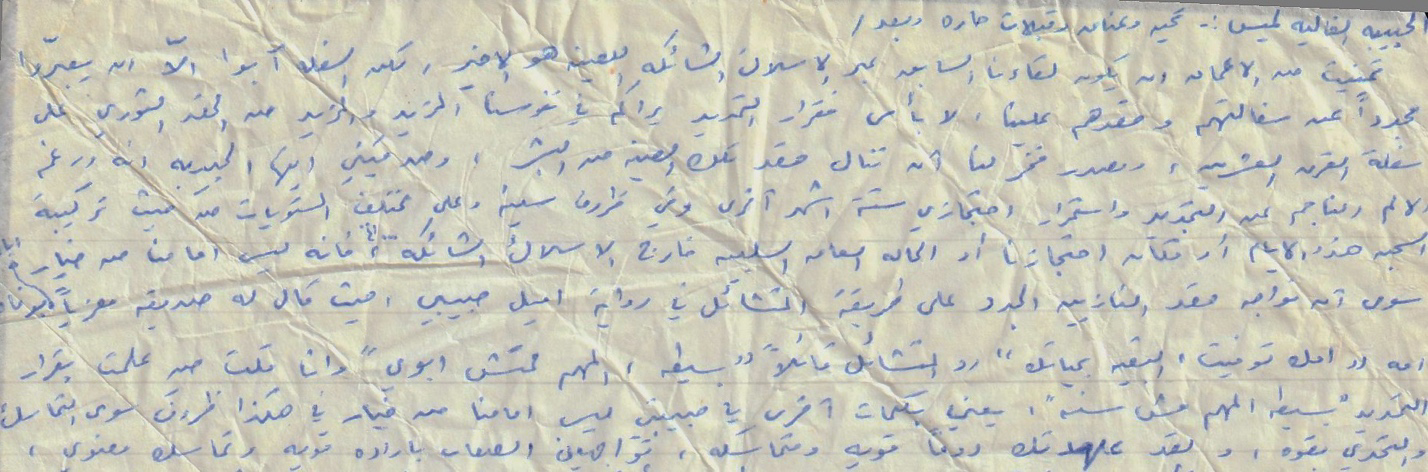 الحبيبه الغاليه لميس :- تحيه وعناق وقبلات حاره وبعد /
تمنيت من الاعماق ان يكون لقاءنا السابق عبر الاسلاك الشائكه اللعينه هو الاخير ، لكن السفله آبوا الاّ ان يعبرّوا
مجدداً عن سفالتهم وحقدهم علينا ، لا بأس فقرار التمديد يراكم في نفوسنا المزيد والمزيد من الحقد الثوري على
سفلة القرن العشرين ، ومصدر فخر لنا أن ننال حقد تلك العينه من البشر ، وصدقيني ايتها الحبيبه انه ورغم
الالم الناجم عن التمديد واستمرار احتجازي ستة اشهر أخرى وفي ظروف سيئه وعلى مختلف المستويات من حيث تركيبة
السجن هذه الايام أو مكان احتجازنا أو الحاله العامه السلبيه خارج الاسلاك الشائكه ، فانه ليس امامنا من خيار
سوى أن نواجه حقد النازيين الجدد على طريقة المتشائل في رواية اميل حبيبي ، حيث قال له صديقه معزياً بوفاة
امه " امك توفيت ، البقيه بحياتك " رد المتشائل قائلاً " بسيطه ، المهم محتش ابوي " وانا قلت حين علمت بقرار
التمديد " بسيطه المهم مش سنه " ، يعني بكلمات أخرى يا حبيبتي ليس امامنا من خيار في هكذا ظروف سوى التماسك
والتحدي بقوه ، ولقد عهدتك دوماً قويه ومتماسكه ، تواجهين الصعاب باراده قويه وتماسك معنوي ،